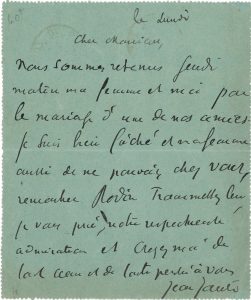 le Lundi
Cher Monsieur,
Nous sommes retenus Jeudi
matin ma femme et moi par
le mariage d'une de nos amies
Je suis bien fâché et ma femme
aussi de ne pouvoir chez vous
rencontrer Rodin
je vous prie, notre respectueuse
admiration et croyez moi de
tout cœur et de toute pensée à vous